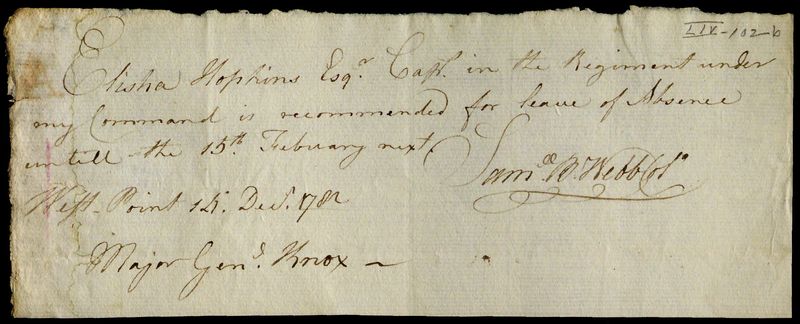 LIX-102-b
Elisha Hopkins Esqr. Capt. in the Regiment under
my Command is recommended for leave of Absence
untill the 15th. Febuary next.
Saml. B. Webb Col.
West-Point 15. Decr. 1782
Major Genl. Knox —